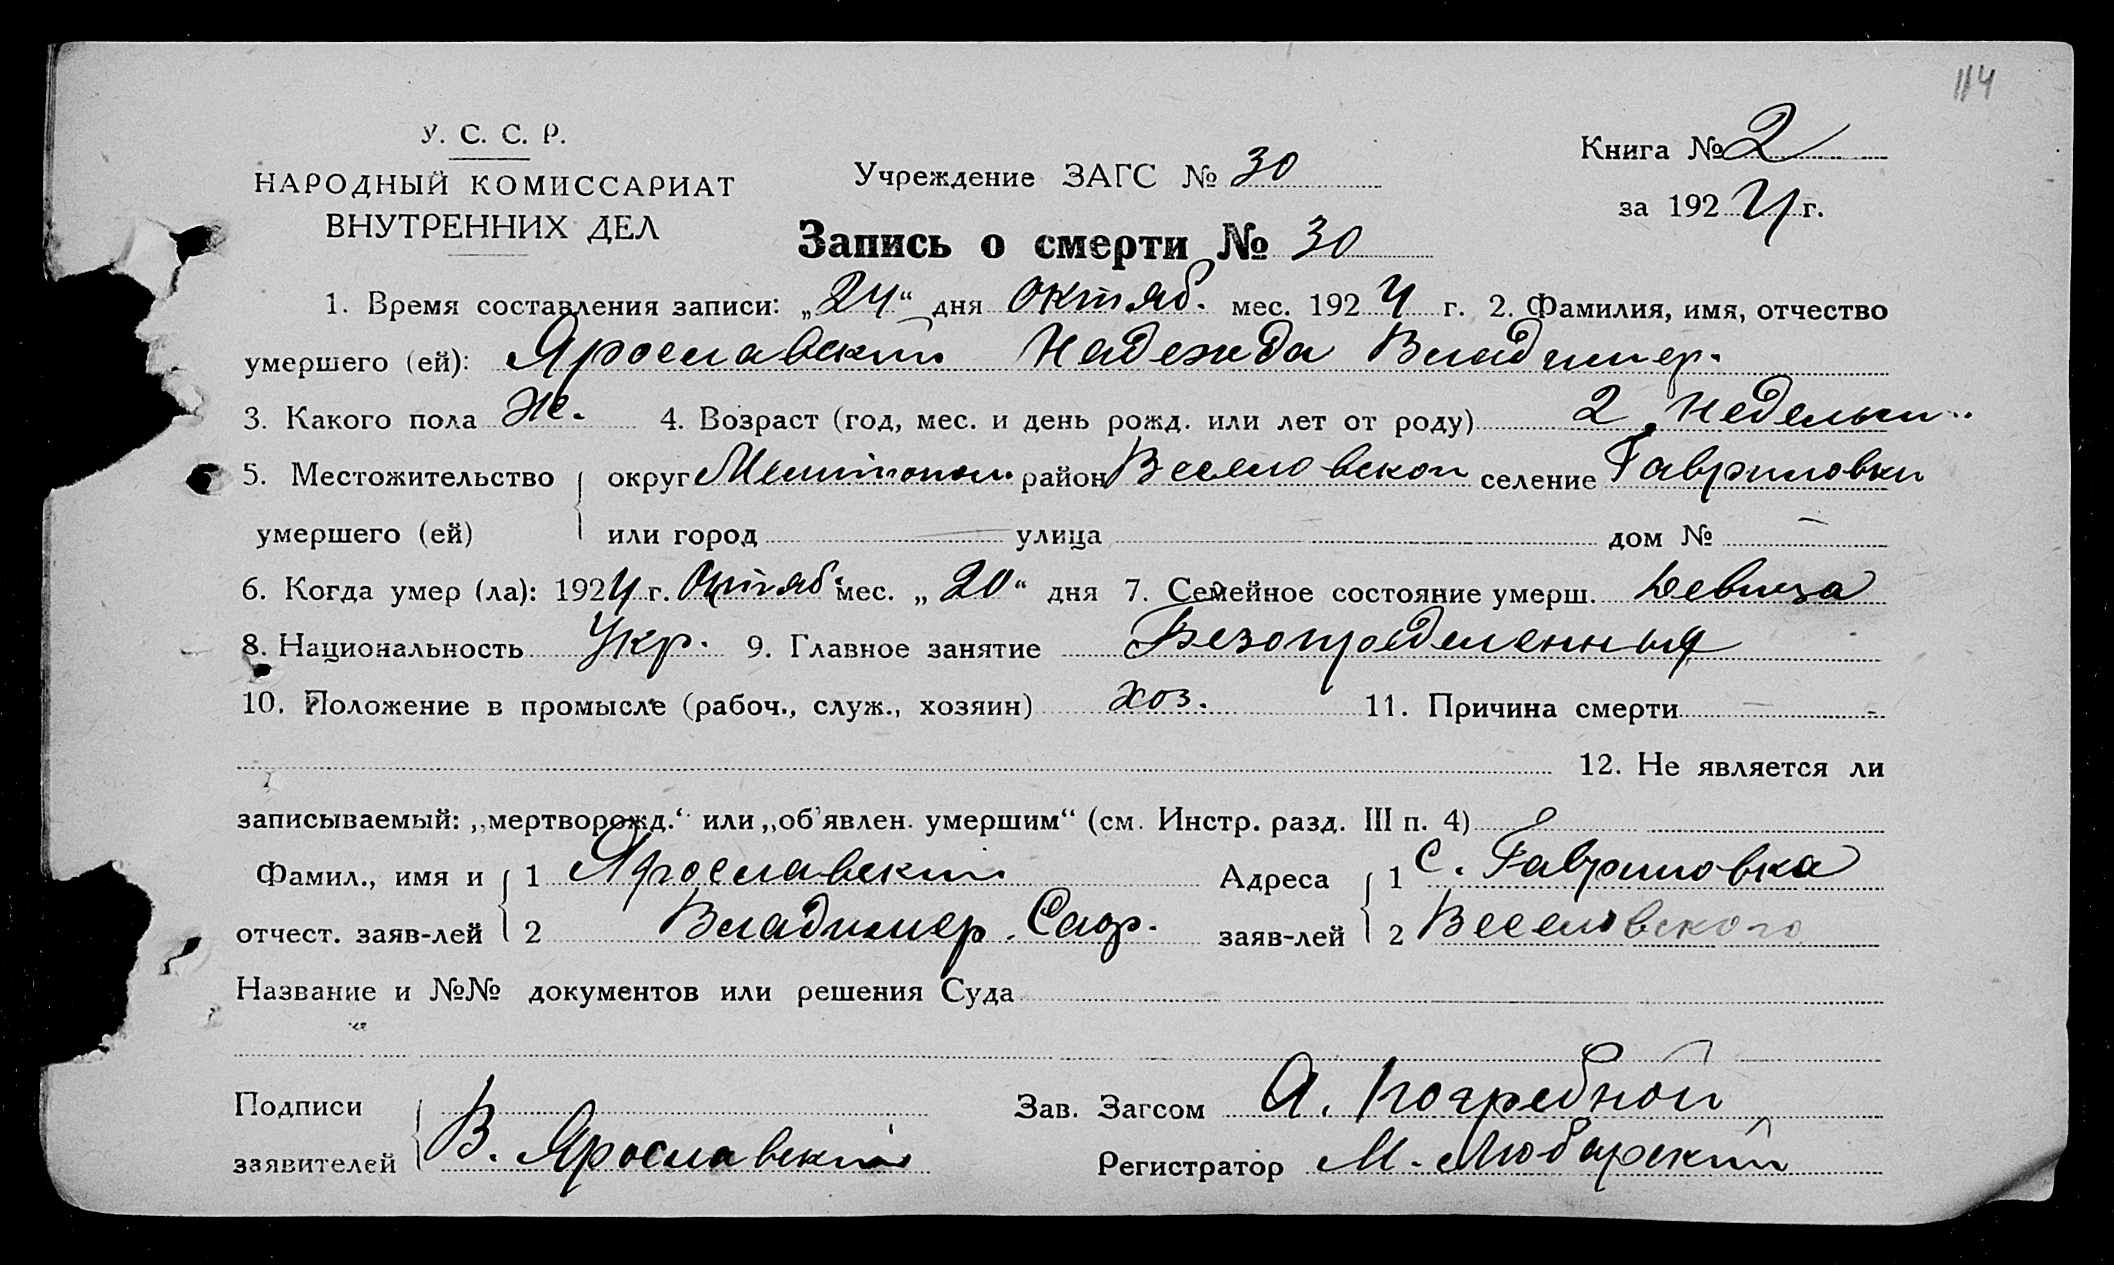 114
У. С. С. Р.
НАРОДНЫЙ КОМИССАРИАТ
ВНУТРЕННИХ ДЕЛ
Учреждение ЗАГС № 30
Книга № 2
за 1924 г.
Запись о смерти № 30
1. Время составления записи: „24“ дня Октяб. мес. 1924 г. 2. Фамилия, имя, отчество
умершего (ей): Ярославский Надежда Владимер.
3. Какого пола Же. 4. Возраст (год, мес. и день рожд. или лет от роду) 2 недельи
5. Местожительство округ Мелитопол. район Веселовской селение Гавриловки
умершего (ей) или город — улица дом № —
6. Когда умер (ла): 1924 г. Октяб. мес. „20“ дня 7. Семейное состояние умерш. девица
8. Национальность Укр. 9. Главное занятие
10. Положение в промысле (рабоч., служ., хозяин) хоз. 11. Причина смерти —
12. Не является ли
записываемый: „мертворожд.“ или „об'явлен. умершим“ (см. Инстр. разд. III п. 4)
Фамил., имя и 1 Ярославский Адреса 1 с. Гавриловка
отчест. заяв-лей 2 Владимер заяв-лей 2 Веселовского
Название и №№ документов или решения Суда
Подписи Зав. Загсом А. Погребной
заявителей В. Ярославский Регистратор М. Любарский